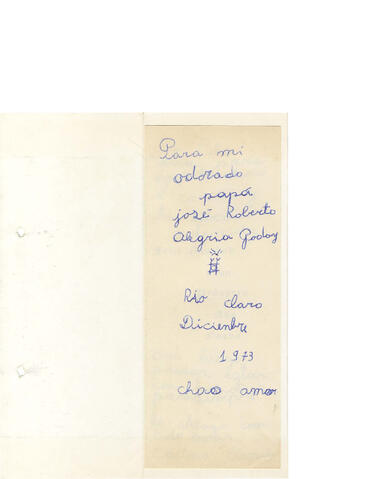 Para mi
adorado
papá
josé Roberto
Alegria Godoy
Rio claro
Diciembre
1973
chao amor